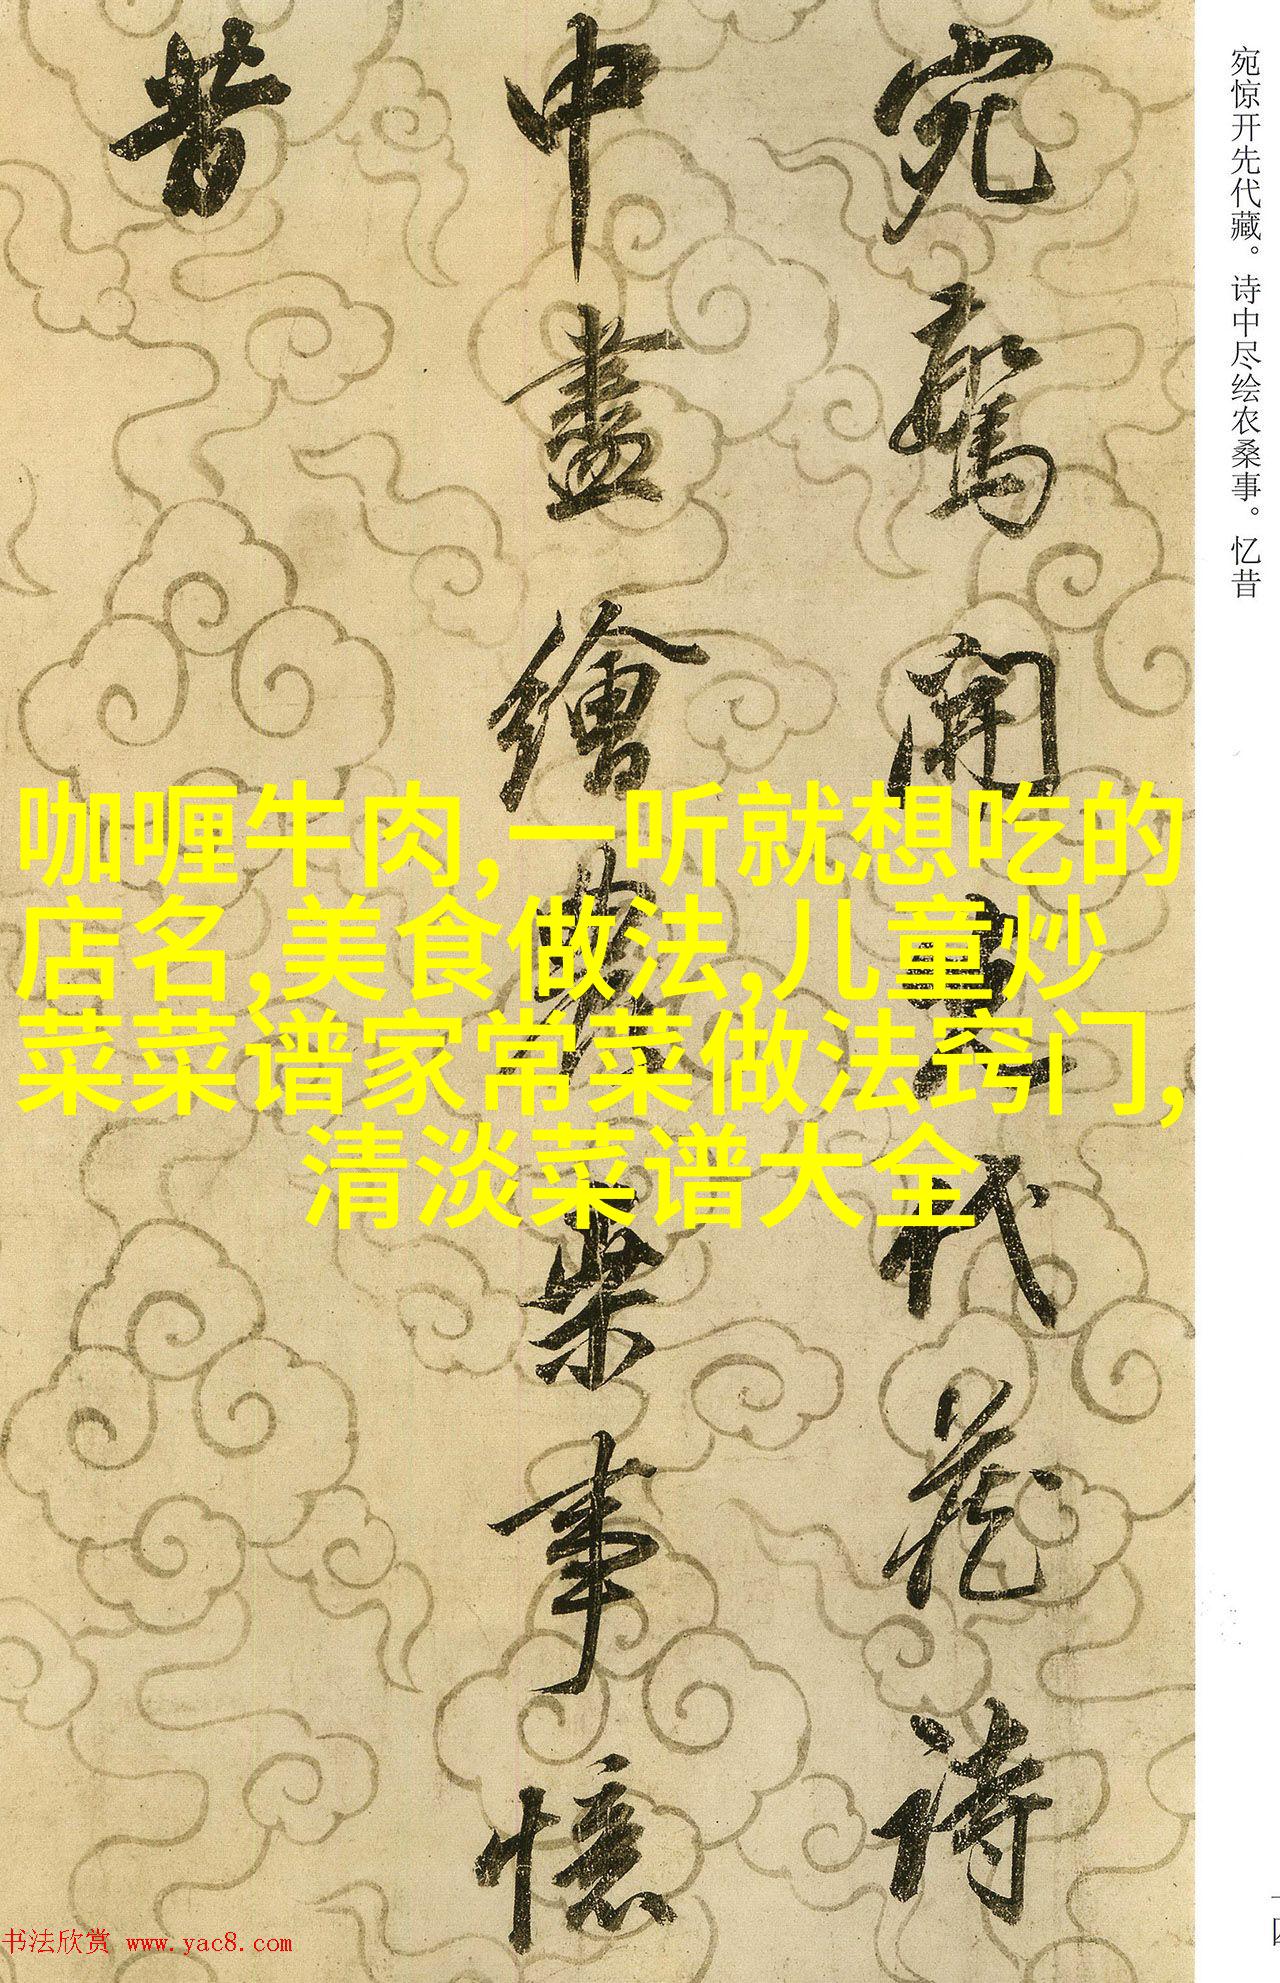 宛驚開先代藏詩
中盡繪農桒事憶
昔
宛惊开先代藏。诗中尽绘农桑事。忆昔
咖喱牛肉,一听就想吃的
店名,美食做法,儿童炒
菜菜谱家常菜做法窍门,
清淡菜谱大全
书法欣赏 www.yac8.com